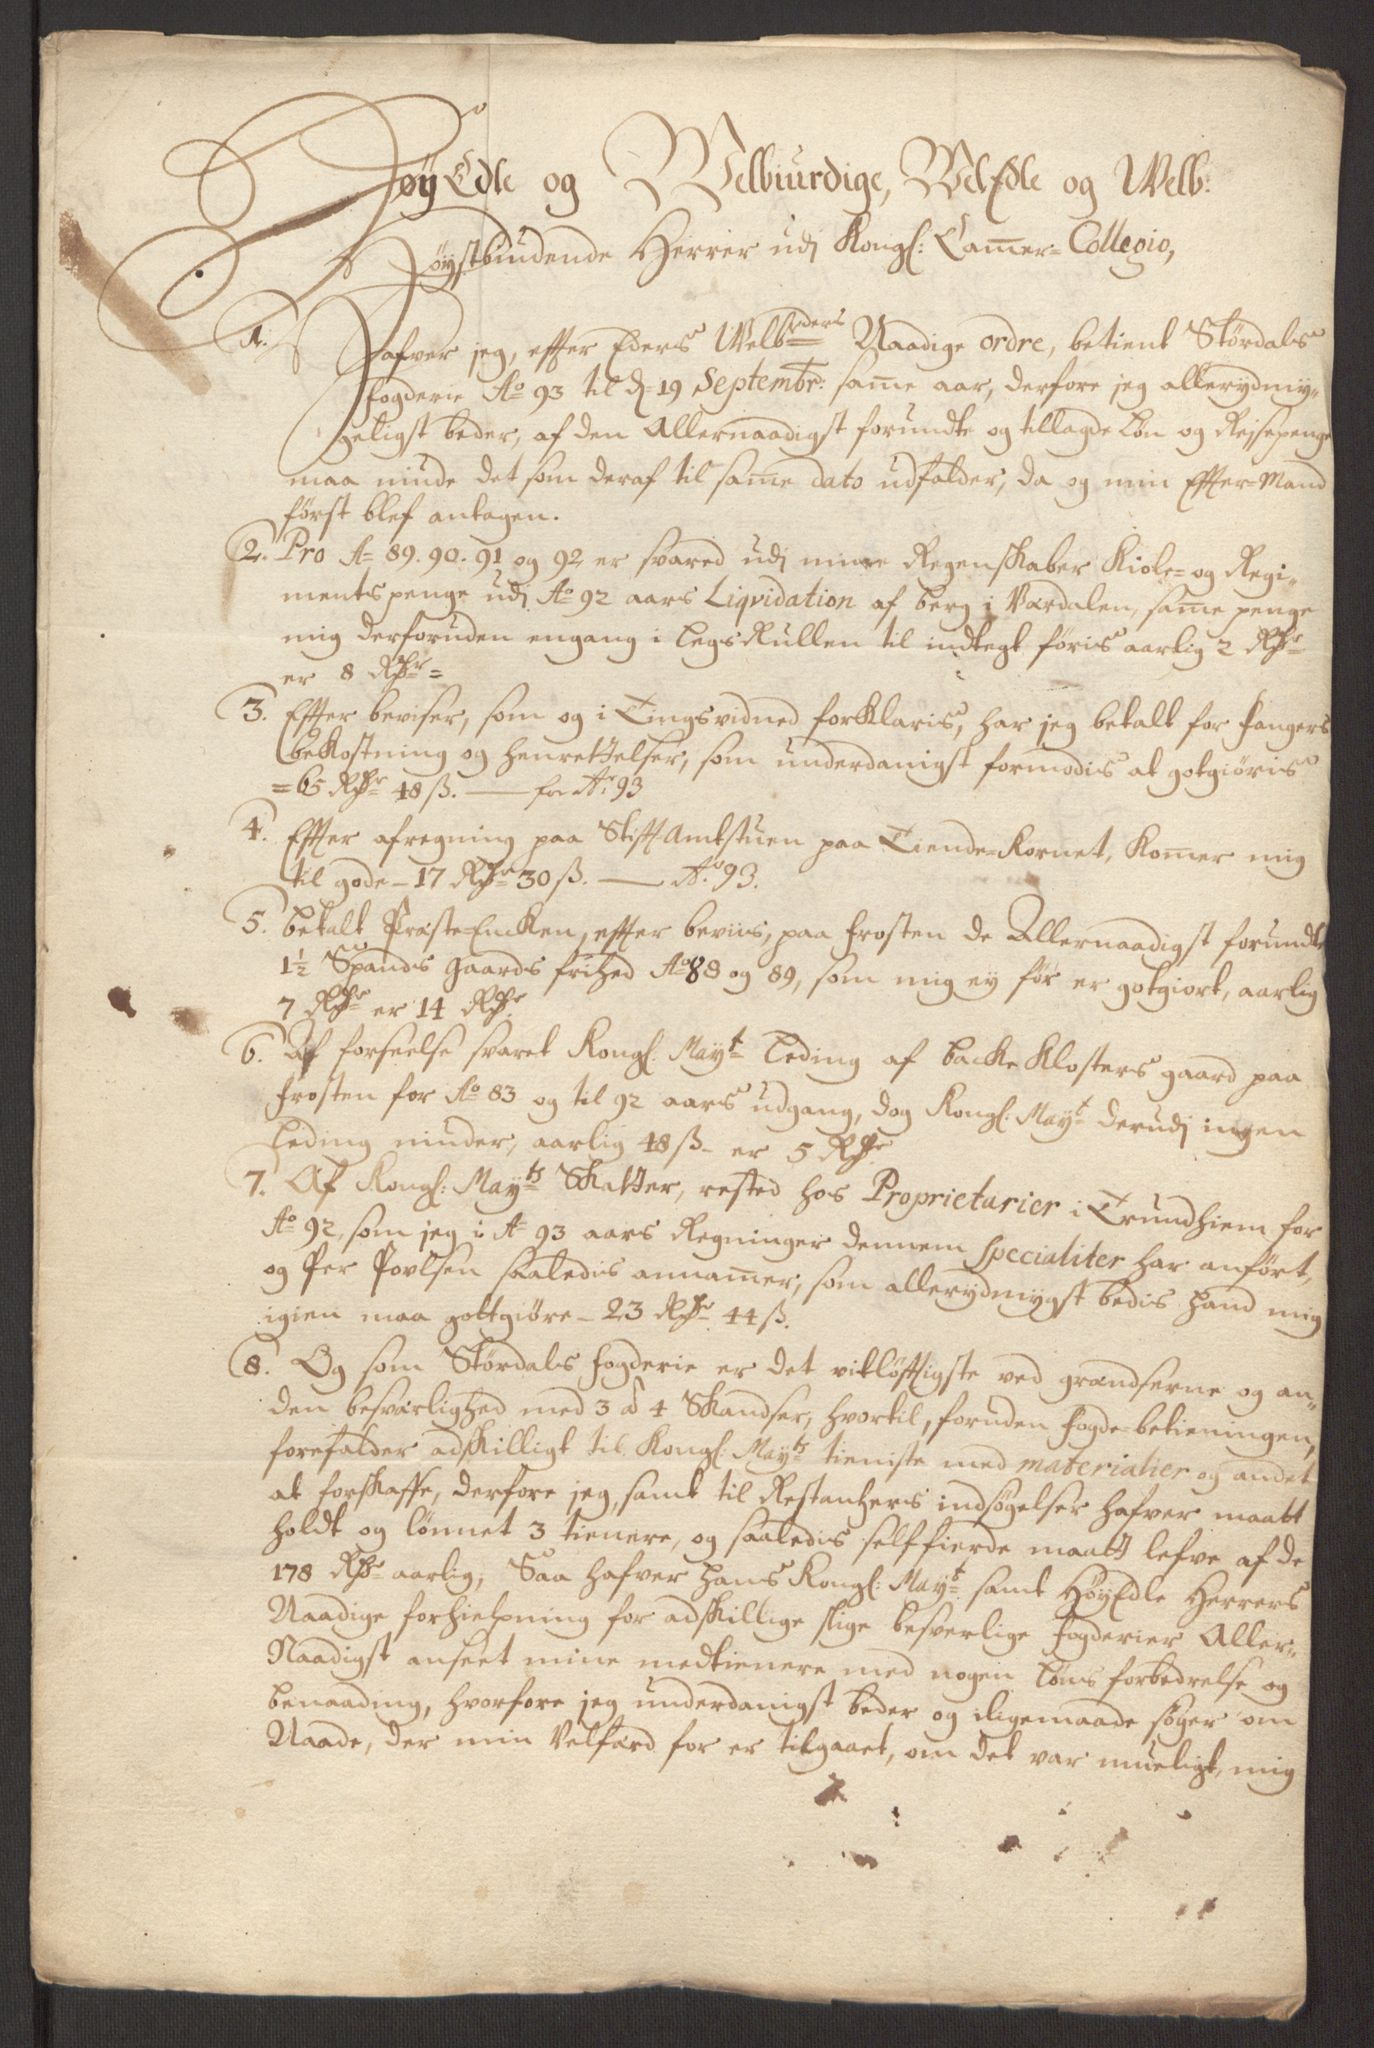 HøyEdle og Welbiurdige, WelEdle og Welb:
Høystbiudende Herrer udj Kongl: Camer=Collegio,
1. Hafver jeg, effter Eders Welb:heders Naadige ordre, betient Størdals
fogderie Ao 93 til d= 19 Septembr: same aar, derfore jeg allerydmy=
geligst beder, af den Allernaadigst forundte og tillagde Løn og Rejsepenge
maa niude det som deraf til same dato udfalder, da og min Effter=Mand
først blef antagen.
2. Pro A= 89. 90. 91 og 92 er svared udj mine Regenskaber Kiole= og Regi=
mentspenge udj Ao 92 aars Liqvidation af berg i Værdalen, same penge
mig derforuden engang i LegsRullen til indtegt føris aarlig 2 Rdr
er 8 Rdr=
3. Effter beviser, som og i Tingsvidned forklaris, har jeg betalt for Fangers
bekostning og henrettelser, som underdanigst formodis at gotgiøris
= 65 Rdr 48 ß. — for Ao 93
4. Effter afregning paa StifftAmtstuen paa Tiende=Kornet, Komer mig
til gode – 17 Rdr 30 ß. — Ao 93.
5. betalt Præste=Encken, effter beviis, paa Frosten de Allernaadigst forundte
1½ Spands Gaards frihed Ao 88 og 89, som mig ey før er gotgiort, aarlig
7 Rdr er 14 Rdr.
6. Af forseelse svaret Kongl: Mayt Leding af backe Klosters gaard paa
Frosten for Ao 83 og til 92 aars udgang, dog Kongl: Mayt derudj ingen
Leding niuder, aarlig 48 ß – er 5 Rdr
7. Af Kongl: Mayts Skatter, rested hos Proprietarier i Trundhiem for
Ao 92, som jeg i A= 93 aars Regninger dennem specialiter har anført,
og Per Povlsen saaledis annamer, som allerydmygst bedis hand mig
igien maa gottgiøre – 23 Rdr 44 ß.
8. Og som Størdals fogderie er det vitløfftigste ved grændserne og an=
den besværlighed med 3 á 4 Skandser, hvortil, foruden fogde=betieningen,
forefalder adskilligt til Kongl: Mayts tieniste med materialier og andet
at forskaffe, derfore jeg, samt til Restantzers indsøgelser hafver maatt
holdt og lønnet 3 tienere, og saaledis selffierde maatt lefve af de
178 Rdr aarlig, Saa hafver Hans Kongl: Mayt samt HøyEdle Herrers
Naadige forhielpning for adskillige slige besverlige Fogderier Aller=
Naadigst anseet mine medtienere med nogen Løns forbedrelse og
benaading, hvorfore jeg underdanigst beder og ligemaade søger om
Naade, der min Velfærd for er tilgaaet, om det var mueligt, mig